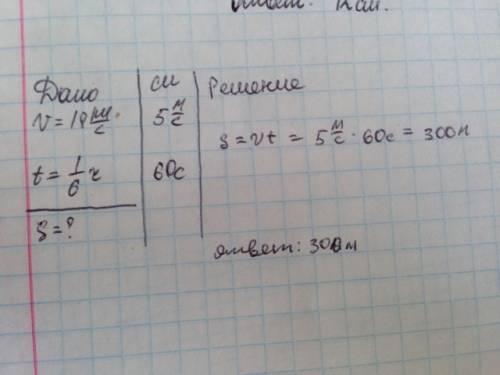 Ответ: 12 км.
Дано
V = 18 км/с
t = 1/6 ч
S = ?
СИ
5 м/с
60с
Решение
S = Vt = 5 м/с · 60с = 300м
Ответ: 300м